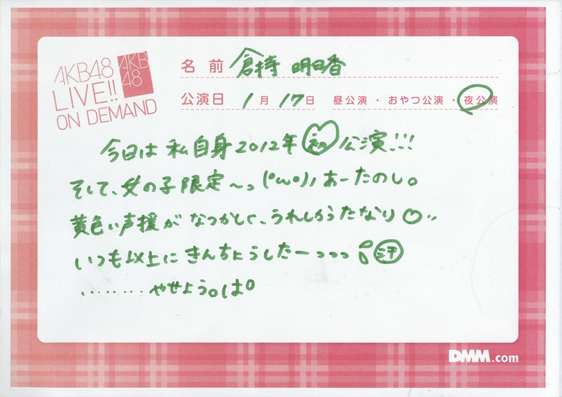 AKB48
LIVE!!
ON DEMAND
AKB
48
名前 倉持 明日香
公演日 1月17日 昼公演・おやつ公演・夜公演
今日は私自身2012年初公演!!!
そして、女の子限定〜っ(°ω°)ノあーたのし。
黄色い声援がなつかしく、うれしかったなり
いつも以上にきんちょうしたーっっっ 汗
・・・・・・・・やせよう。ぱ。
DMM.com